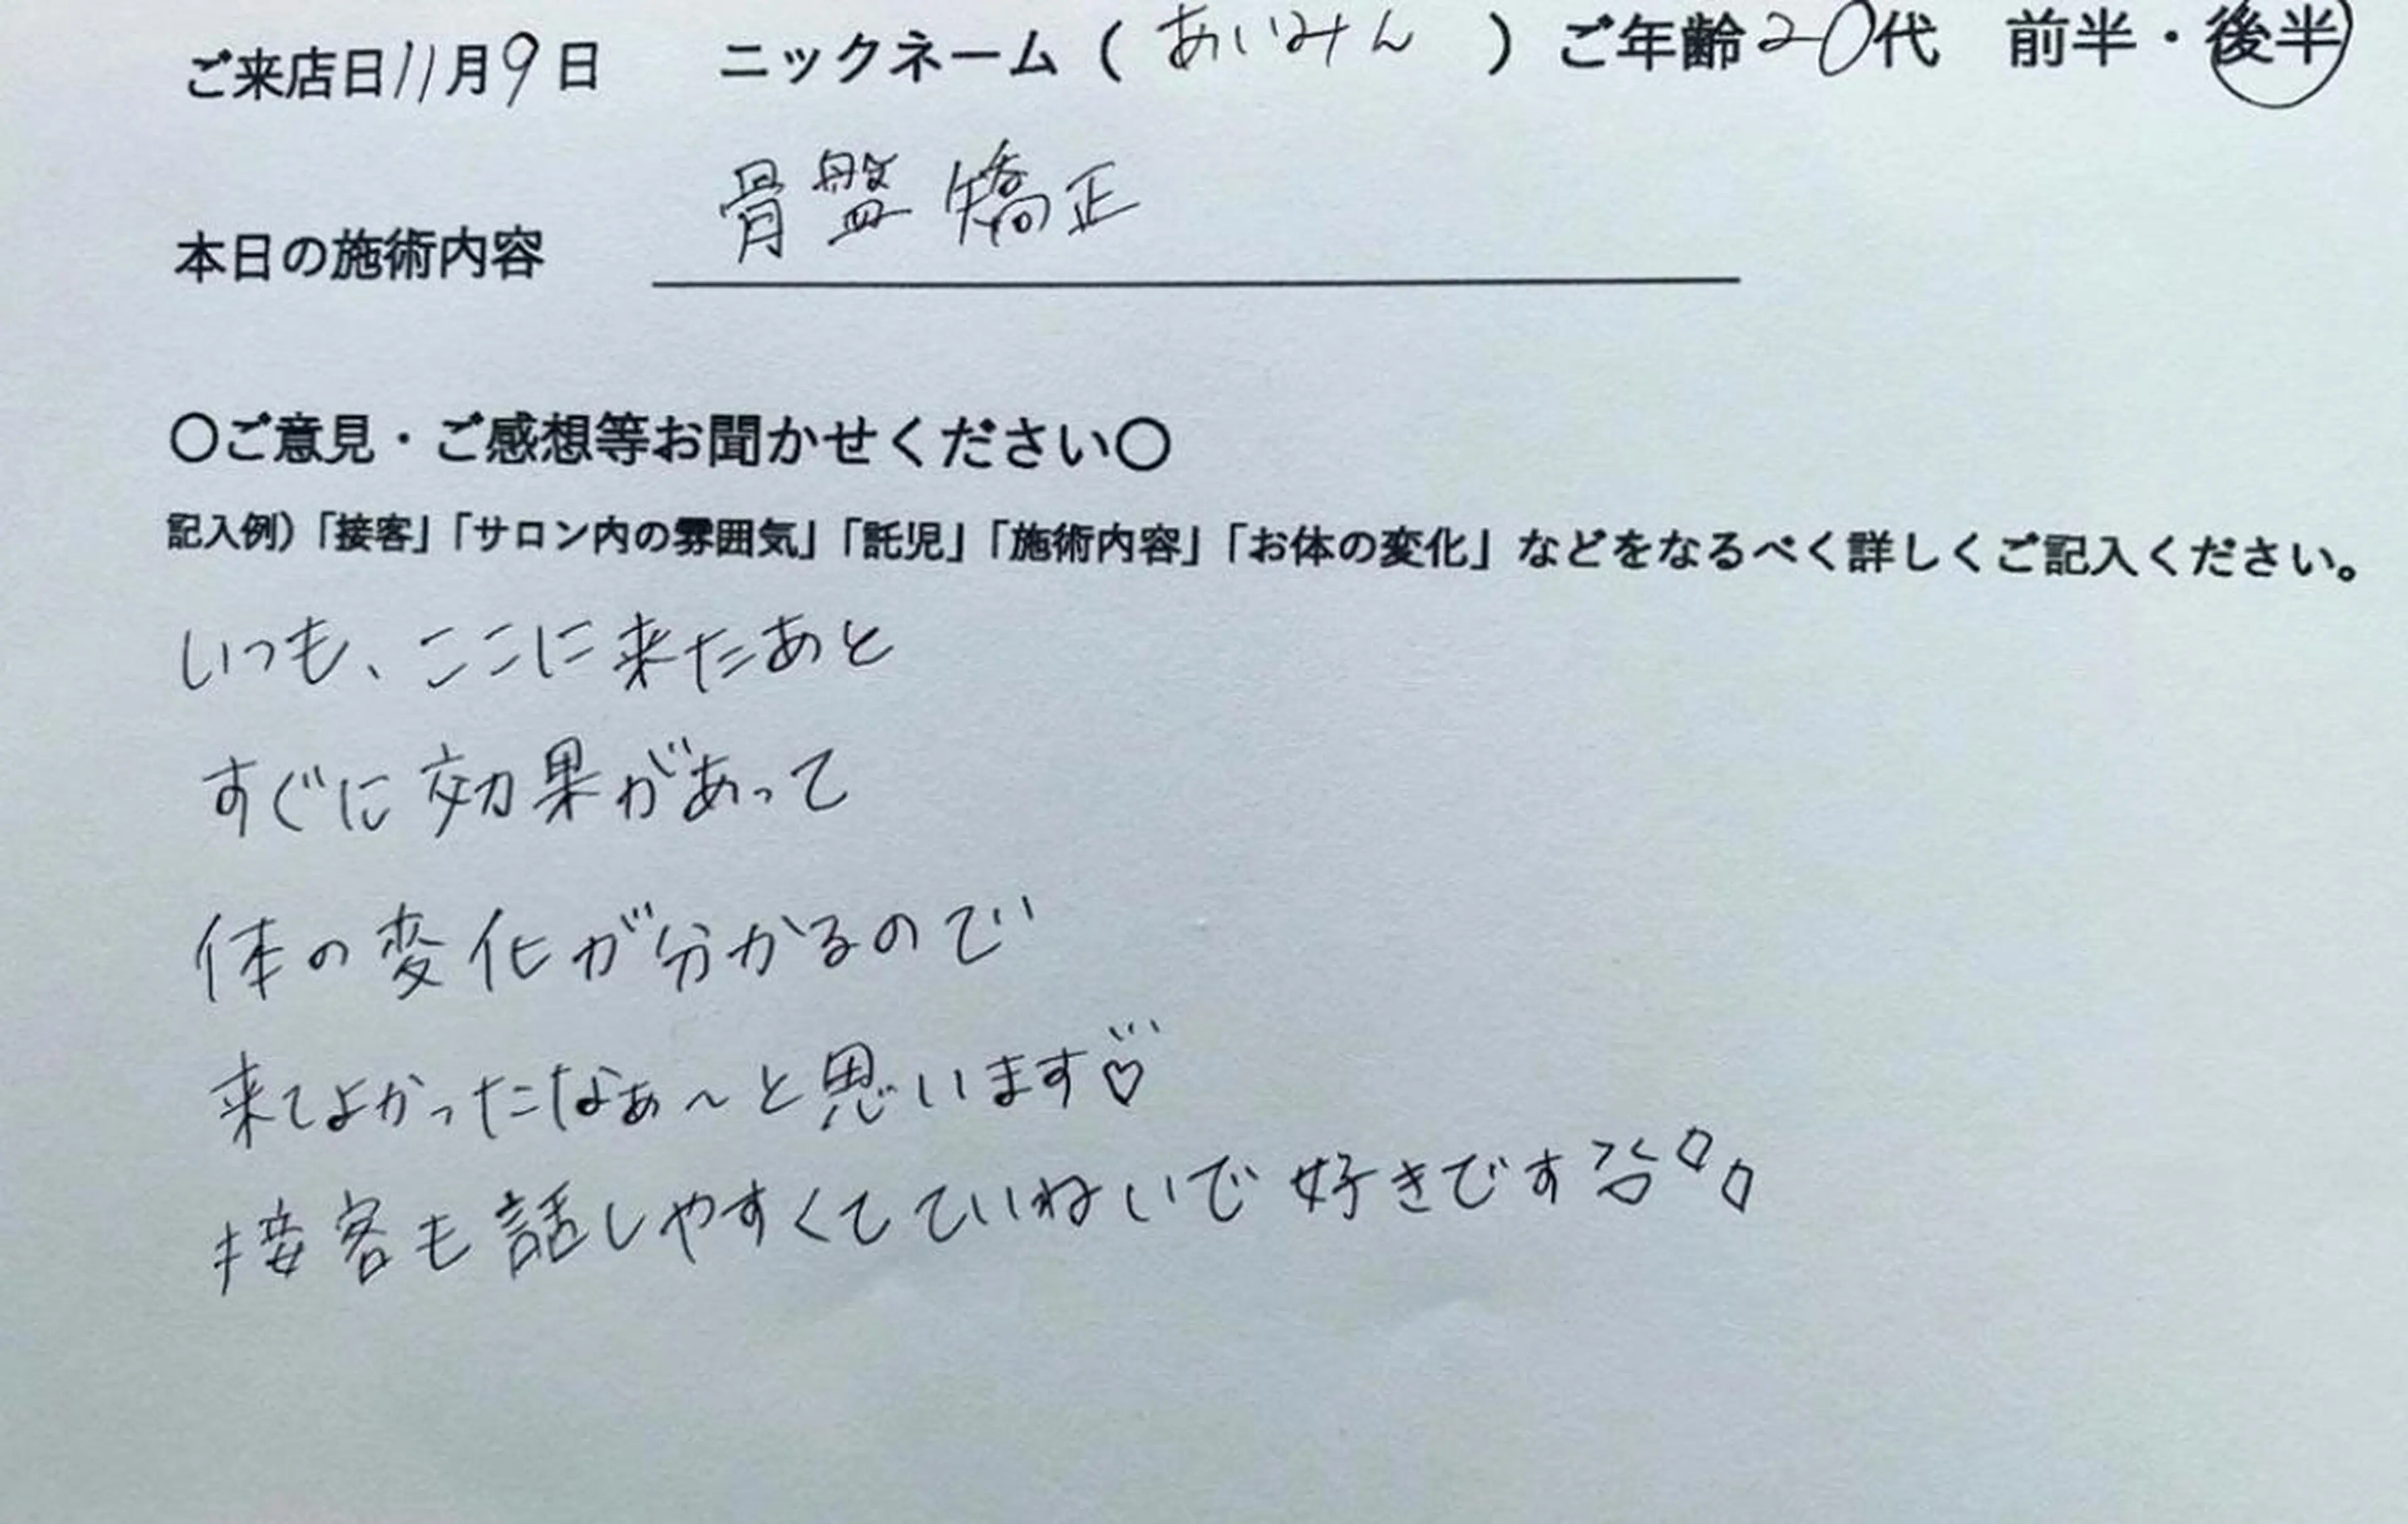 ご来店日11月9日 ニックネーム( あいみん ) ご年齢20代 前半・後半
本日の施術内容 骨盤矯正
〇ご意見・ご感想等お聞かせください〇
記入例)「接客」「サロン内の雰囲気」「託児」「施術内容」「お体の変化」などをなるべく詳しくご記入ください。
いつも、ここに来たあと
すぐに効果があって
体の変化が分かるので
来てよかったなぁ〜と思います♡
接客も話しやすくてていねいで好きです